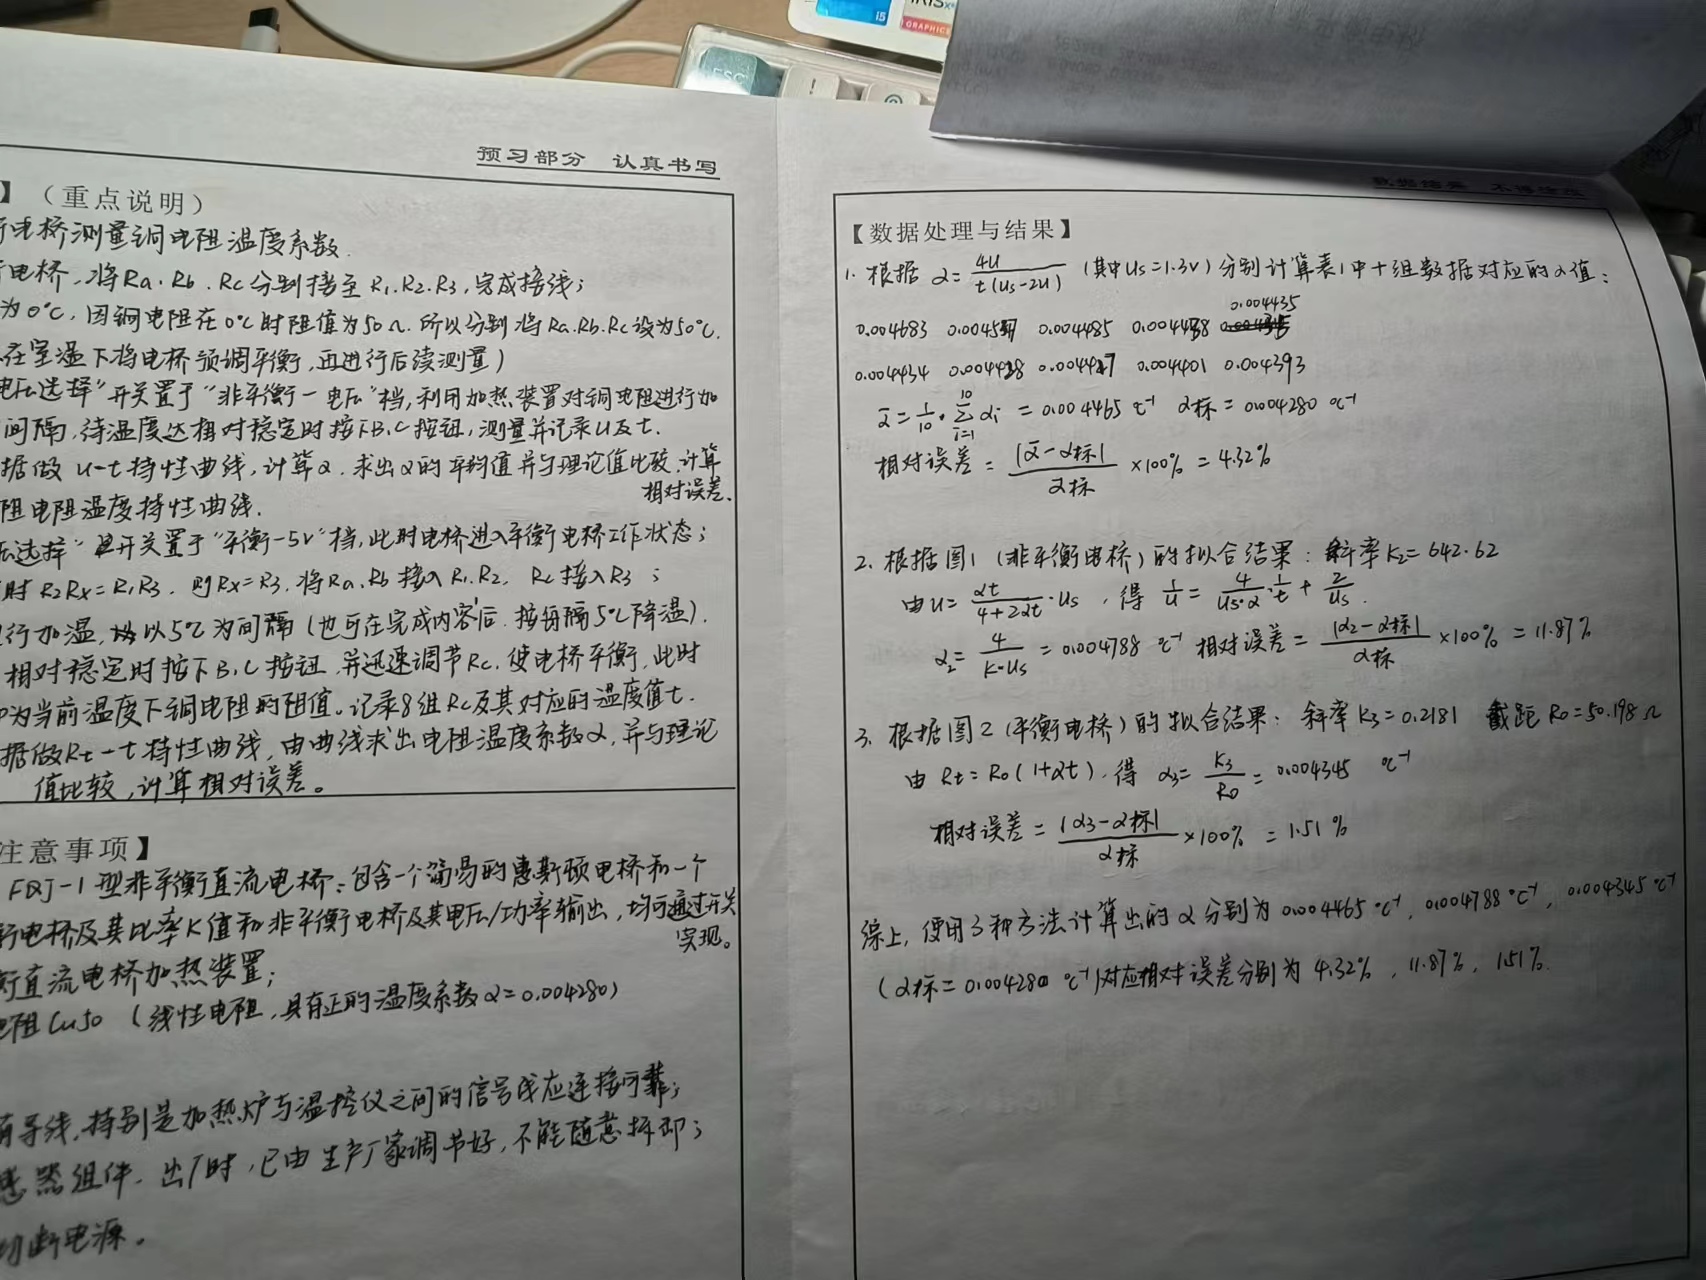 i5
GRAPHICS
ESC
!
预习部分 认真书写
】（重点说明）
电桥测量铜电阻温度系数.
电桥，将Ra.Rb.Rc分别接至R1.R2.R3,完成接线；
为0℃，因铜电阻在0℃时阻值为50Ω.所以分别将Ra.Rb.Rc设为50℃.
在室温下将电桥预调平衡，再进行后续测量）
电压选择"开关置于"非平衡一电压"档,利用加热装置对铜电阻进行加
间隔，待温度达相对稳定时按下B.C按钮，测量并记录U及t.
据做 U-t特性曲线，计算α.求出α的平均值并与理论值比较.计算
相对误差.
阻电阻温度特性曲线.
压选择"开关置于"平衡-5V"档,此时电桥进入平衡电桥工作状态；
时R2Rx=R1R3.则Rx=R3.将Ra.Rb接入R1.R2, Rc接入R3；
行加温,以5℃为间隔（也可在完成内容后.按每隔5℃降温).
相对稳定时按下B.C按钮.并迅速调节Rc.使电桥平衡,此时
为当前温度下铜电阻的阻值。记录8组Rc及其对应的温度值t.
据做Rt-t特性曲线,由曲线求出电阻温度系数α,并与理论
值比较,计算相对误差。
注意事项】
FQJ-1型非平衡直流电桥：包含一个简易的惠斯顿电桥和一个
衡电桥及其比率K值和非平衡电桥及其电压/功率输出,均可通过开关
实现。
衡直流电桥加热装置；
电阻Cu50（线性电阻,具有正的温度系数α=0.004280）
有导线,特别是加热炉与温控仪之间的信号线应连接可靠；
感器组件.出厂时,已由生产厂家调节好,不能随意拆卸；
切断电源。
数据结果 不得涂改
【数据处理与结果】
1.根据 α=4U/t(Us-2U) (其中Us=1.3V)分别计算表1中十组数据对应的α值：
0.004435
0.004683 0.004485
0.004434 0.004401 0.004393
ᾱ=1/10·∑(i=1→10)αi=0.004465 ℃⁻¹ α标=0.004280 ℃⁻¹
相对误差=|ᾱ-α标|/α标 ×100%=4.32%
2.根据图1(非平衡电桥)的拟合结果：斜率K2=642.62
由U=αt/(4+2αt)·Us，得 1/U=4/(Us·α)·1/t+2/Us.
α2=4/(K·Us)=0.004788 ℃⁻¹ 相对误差=|α2-α标|/α标 ×100%=11.87%
3.根据图2(平衡电桥)的拟合结果：斜率K3=0.2181 截距R0=50.198Ω
由Rt=R0(1+αt).得 α3=K3/R0=0.004345 ℃⁻¹
相对误差=|α3-α标|/α标 ×100%=1.51%
综上,使用3种方法计算出的α分别为0.004465℃⁻¹, 0.004788℃⁻¹, 0.004345℃⁻¹
(α标=0.004280 ℃⁻¹)对应相对误差分别为4.32%, 11.87%, 1.51%.